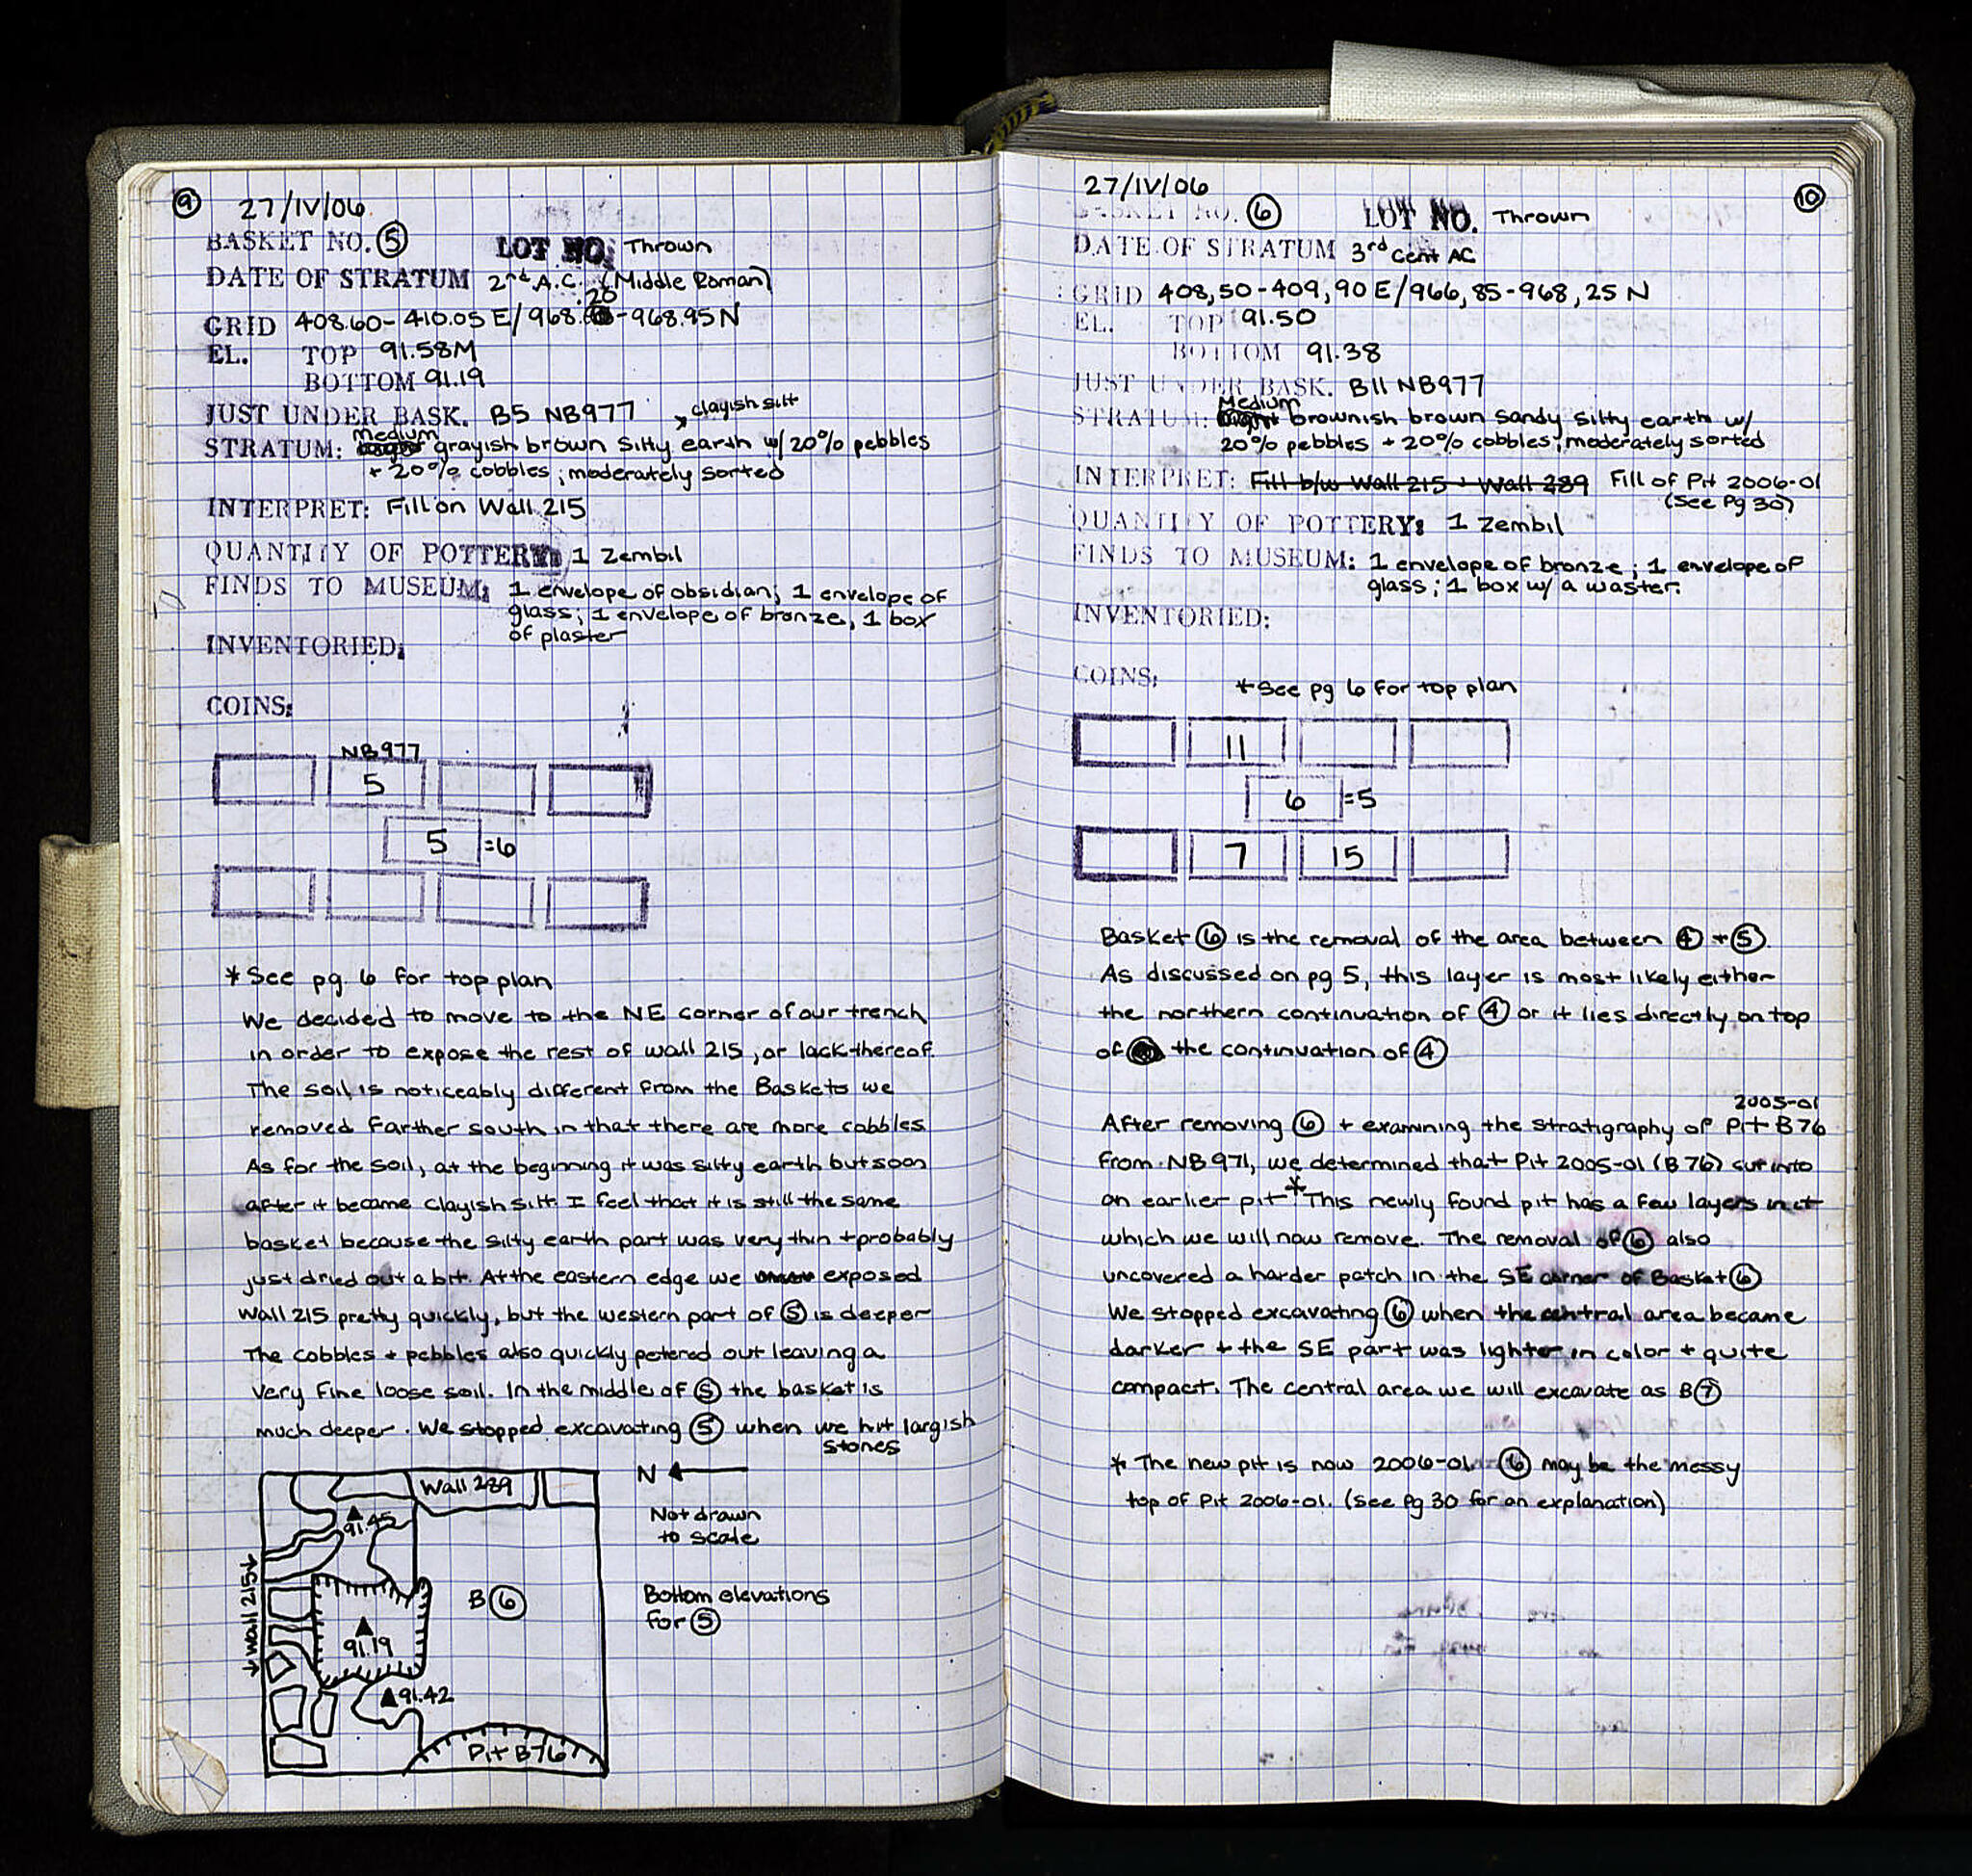 9
27/IV/06
BASKET NO. 5 LOT NO. Thrown
DATE OF STRATUM 2nd A.C. (Middle Roman)
.20
GRID 408.60-410.05 E/968. -968.95 N
EL. TOP 91.58M
BOTTOM 91.19
JUST UNDER BASK. B5 NB977 clayish silt
Medium
STRATUM: grayish brown silty earth w/20% pebbles
+ 20% cobbles; moderately sorted
INTERPRET: Fill on Wall 215
QUANTITY OF POTTERY: 1 Zembil
FINDS TO MUSEUM: 1 envelope of obsidian; 1 envelope of
glass; 1 envelope of bronze, 1 box
of plaster
INVENTORIED:
COINS:
NB977
5
5 =6
*See pg. 6 for top plan
We decided to move to the NE corner of our trench
in order to expose the rest of wall 215, or lack thereof.
The soil is noticeably different from the Baskets we
removed farther south in that there are more cobbles
As for the soil, at the beginning it was silty earth but soon
after it became clayish silt. I feel that it is still the same
basket because the silty earth part was very thin + probably
just dried out a bit. At the eastern edge we exposed
Wall 215 pretty quickly, but the western part of 5 is deeper
The cobbles + pebbles also quickly petered out leaving a
very fine loose soil. In the middle of 5 the basket is
much deeper. We stopped excavating 5 when we hit largish
stones
Wall 289
N
Not drawn
to scale
91.45
Wall 215
B6
Bottom elevations
for 5
91.19
91.42
Pit B76
10
27/IV/06
BASKET NO. 6 LOT NO. Thrown
DATE OF STRATUM 3rd Cent AC
GRID 408,50-409,90 E/966,85-968,25 N
EL. TOP 91.50
BOTTOM 91.38
JUST UNDER BASK. B11 NB977
Medium
STRATUM: brownish brown sandy silty earth w/
20% pebbles + 20% cobbles; moderately sorted
INTERPRET: Fill b/w Wall 215 + Wall 289 Fill of Pit 2006-01
(See Pg 30)
QUANTITY OF POTTERY: 1 Zembil
FINDS TO MUSEUM: 1 envelope of bronze; 1 envelope of
glass; 1 box w/ a waster.
INVENTORIED:
COINS:
*See pg 6 for top plan
11
6 =5
7 15
Basket 6 is the removal of the area between 4 + 5.
As discussed on pg 5, this layer is most likely either
the northern continuation of 4 or it lies directly on top
of the continuation of 4
2005-01
After removing 6 + examining the stratigraphy of Pit B76
from NB 971, we determined that Pit 2005-01 (B76) cut into
an earlier pit.* This newly found pit has a few layers in it
which we will now remove. The removal of 6 also
uncovered a harder patch in the SE corner of Basket 6
We stopped excavating 6 when the central area became
darker + the SE part was lighter in color + quite
compact. The central area we will excavate as B7
* The new pit is now 2006-01. 6 may be the messy
top of Pit 2006-01. (See pg 30 for an explanation)